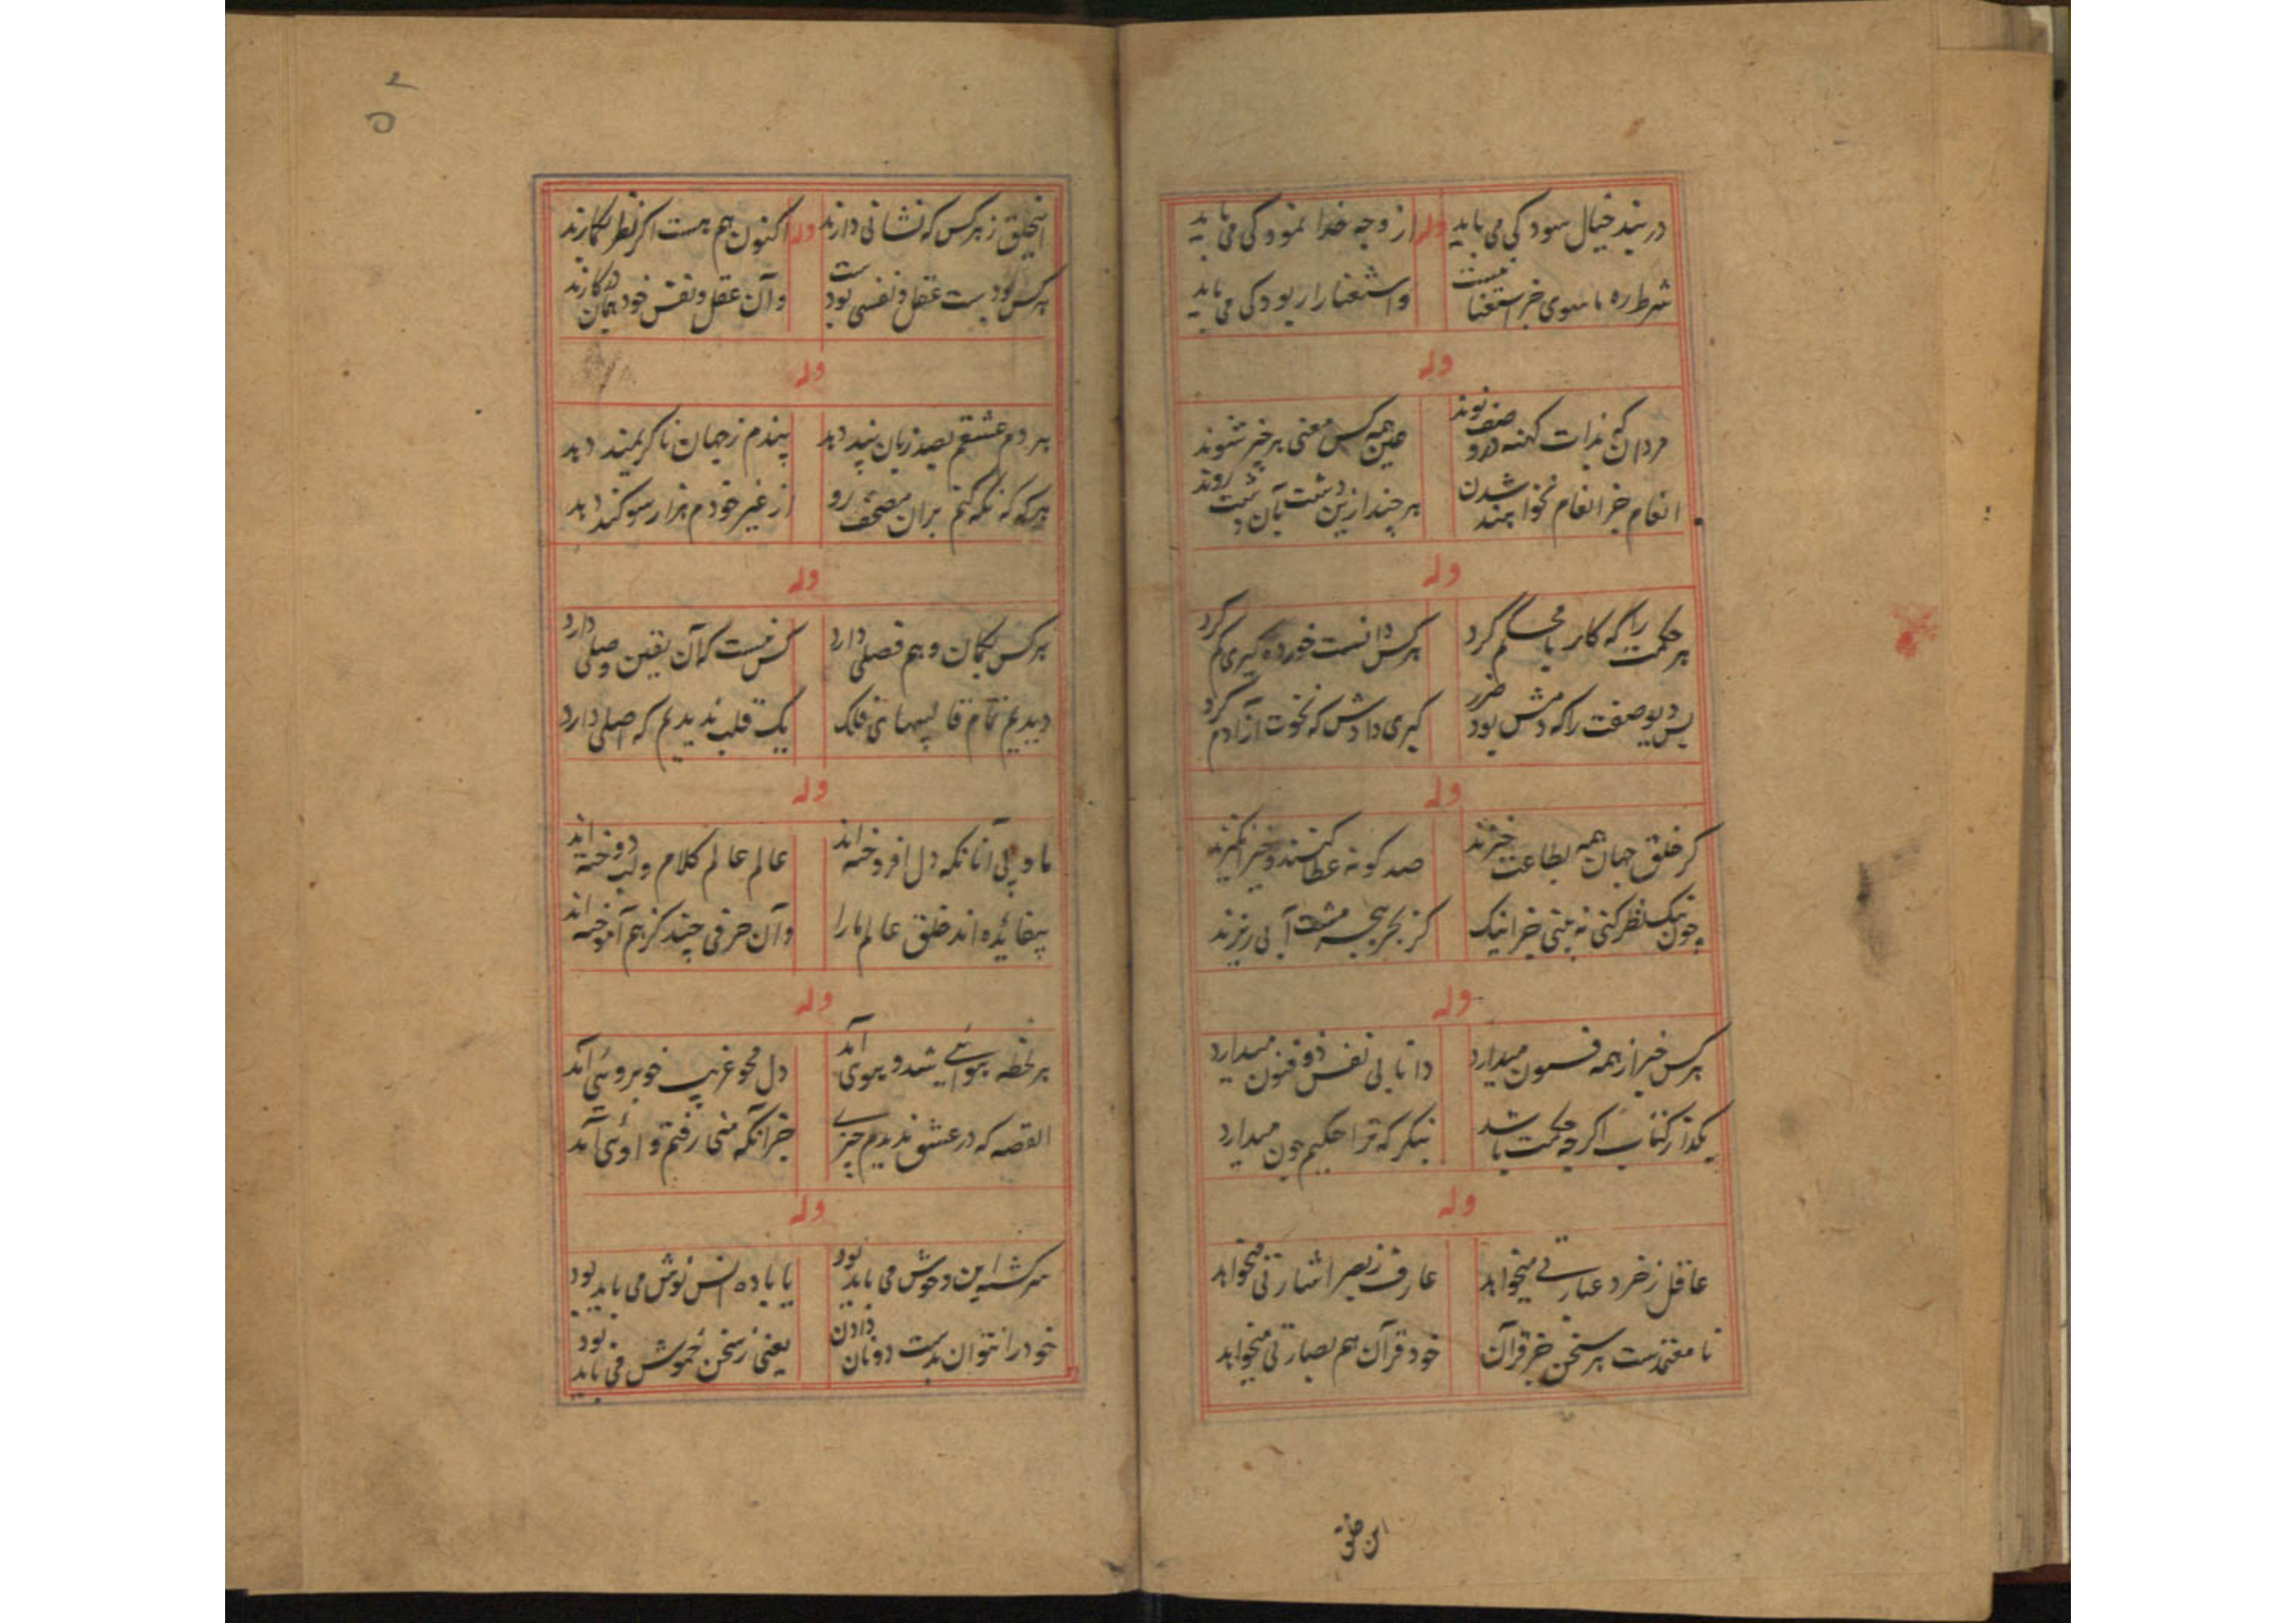 در بند خیال سود کی می باید وله از وجه خدا نمود کی می باید
شرط ره ما سوی جز استغنا نیست و استغنا را ربود کی می باید
وله
مردان که بذات کهنه و در صف نوند عین همه کس معنی هر خیر شوند
انعام جز انعام نخواهند شدن هر چند ازین دشت بآن دشت روند
وله
هر حکمت را که کار با محکم کرد هر کس دانست خورده گیری کم کرد
پس دیو صفت را که دمش بود ضرر کبری دادش که نخوت از آدم کرد
وله
گر خلق جهان همه بطاعت خیزند صد گونه عطا کنند و خیر انگیزند
چون نیک نظر کنی نه بینی جز اینک کز بحر ببحر مشت آبی ریزند
وله
هر کس خبر از همه فسون میدارد دانایی نفس ذو فنون میدارد
بگذار کتاب اگرچه حکمت باشد بنگر که ترا حکیم چون میدارد
وله
عاقل ز خرد عبارتی میخواهد عارف ز بصر اشارتی میخواهد
نا معتمدست هر سخن جز قرآن خود قرآن هم بصارتی میخواهد
این خلق
۵۲
اینخلق ز هر کس که نشانی دارند وله اکنون هم هست اگر نظر بگمارند
هر کس بودست عقل و نفسی بودست و آن عقل و نفس خود همان در کارند
وله
هر دم عشقم بصد زبان پند دهد پندم ز جهان ناگریمند دهد
هر گه که نگه کنم بران مصحف رو از غیر خودم هزار سوگند دهد
وله
هر کس بگمان و هم فصلی دارد کس نیست که آن یقین وصلی دارد
دیدیم تمام قالبهای فلک یک قلب ندیدیم که اصلی دارد
وله
ما و پی آنانکه دل افروخته اند عالم عالم کلام و لب دوخته اند
بیفائده اند خلق عالم ما را و آن حرفی چند کز هم آموخته اند
وله
هر لحظه بهوائی شد و بهوی آمد دل محو غریب خوبروئی آمد
القصه که در عشق ندیدم چیزی جز آنکه منی رفتم و اوئی آمد
وله
سرگشته این وحوش می باید بود یا باده انس نوش می باید بود
خود را نتوان بدست دونان دادن یعنی ز سخن خموش می باید بود